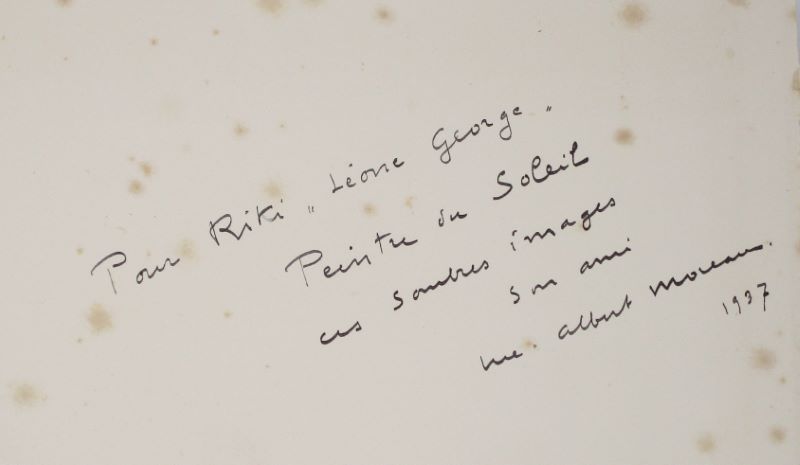 Pour Riki „ Léone George „
Peintre du Soleil
ces sombres images
son ami
Luc. Albert Moreau.
1937